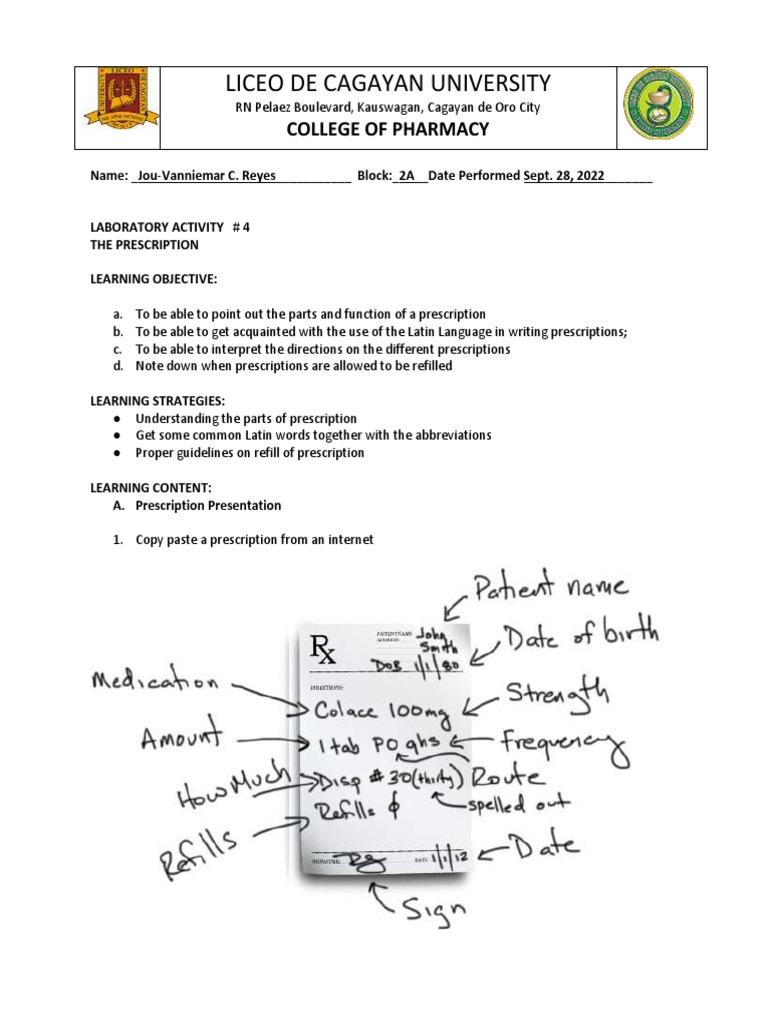 LICEO DE CAGAYAN UNIVERSITY
RN Pelaez Boulevard, Kauswagan, Cagayan de Oro City
COLLEGE OF PHARMACY
Name: _Jou-Vanniemar C. Reyes___________ Block:_2A__Date Performed Sept. 28, 2022_______
LABORATORY ACTIVITY # 4
THE PRESCRIPTION
LEARNING OBJECTIVE:
a. To be able to point out the parts and function of a prescription
b. To be able to get acquainted with the use of the Latin Language in writing prescriptions;
c. To be able to interpret the directions on the different prescriptions
d. Note down when prescriptions are allowed to be refilled
LEARNING STRATEGIES:
● Understanding the parts of prescription
● Get some common Latin words together with the abbreviations
● Proper guidelines on refill of prescription
LEARNING CONTENT:
A. Prescription Presentation
1. Copy paste a prescription from an internet
Patient name
Rx
PATIENT NAME John
Smith
Date of birth
DOB 1/1/80
DIRECTIONS:
Medication
Colace 100mg
Strength
Amount
1 tab PO qhs
Frequency
How Much
Disp # 30 (thirty)
Route
spelled out
Refills
Refills ϕ
SIGNATURE:
DATE: 1/1/12
Date
Sign